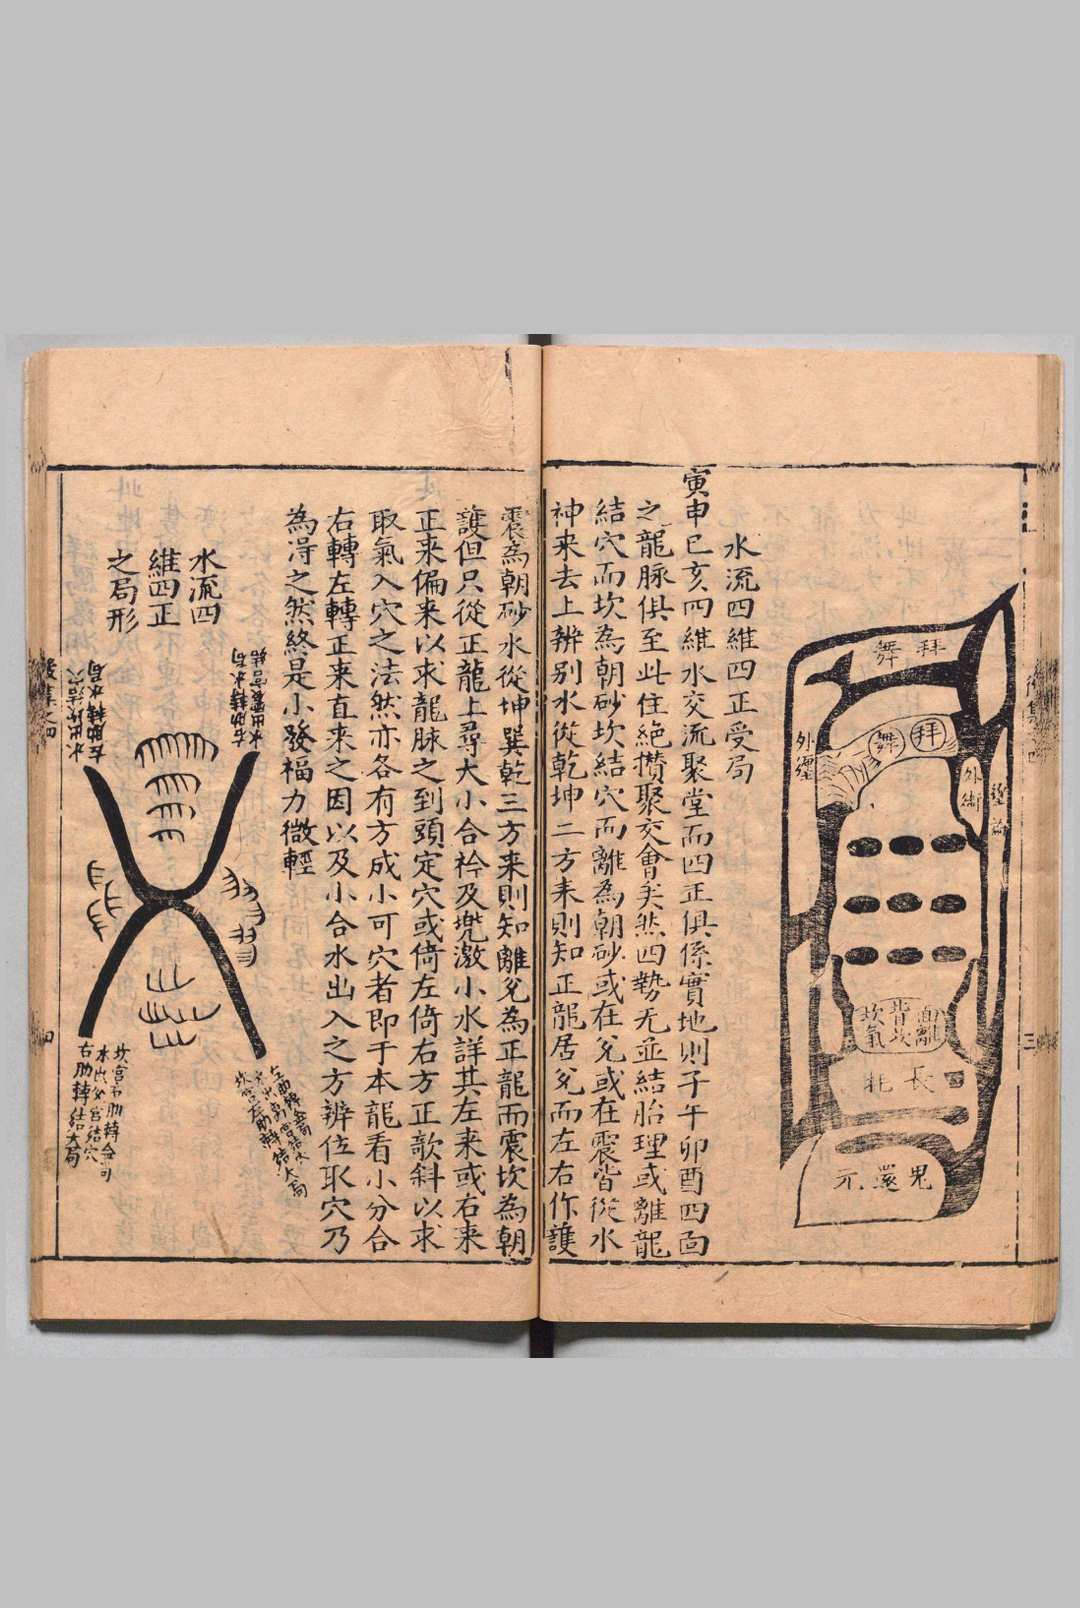 拜舞
拜舞
外纏
外衛
面離
背坎
坎氣
鬼還元
水流四維四正受局
寅申巳亥四維水交流聚堂而四正俱係實地則子午卯酉四面
之龍脉俱至此住絶攅聚交會矣然四勢无並結胎理或離龍
結穴而坎為朝砂坎結穴而離為朝砂或在兌或在震皆從水
神来去上辨别水從乾坤二方来則知正龍居兌而左右作護
震為朝砂水從坤巽乾三方来則知離兌為正龍而震坎為朝
護但只從正龍上尋大小合衿及兜激小水詳其左来或右来
正来偏来以求龍脉之到頭定穴或倚左倚右方正欹斜以求
取氣入穴之法然亦各有方成小可穴者即于本龍看小分合
右轉左轉正来直来之因以及小合水出入之方辨位取穴乃
為淂之然終是小發福力微輕
水流四
維四正
之局形
坎宫右肋轉金局
右肋轉結大局